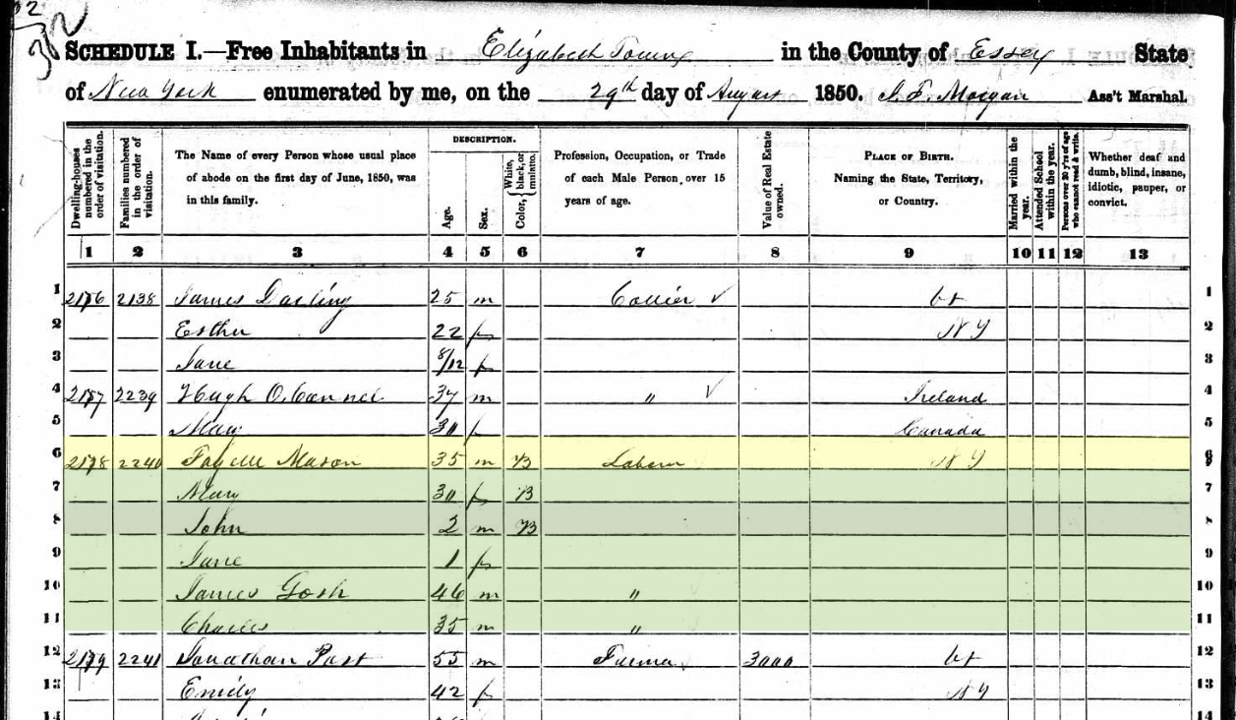 32
312
SCHEDULE I.—Free Inhabitants in Elizabeth Town in the County of Essex State
of New York enumerated by me, on the 29th day of August 1850. Morgan Ass't Marshal.
DESCRIPTION.
Dwelling-houses numbered in the order of visitation.
Families numbered in the order of visitation.
The Name of every Person whose usual place of abode on the first day of June, 1850, was in this family.
Age.
Sex.
Color, { White, black, or mulatto.
Profession, Occupation, or Trade of each Male Person over 15 years of age.
Value of Real Estate owned.
PLACE OF BIRTH. Naming the State, Territory, or Country.
Married within the year.
Attended School within the year.
Persons over 20 y'rs of age who cannot read & write.
Whether deaf and dumb, blind, insane, idiotic, pauper, or convict.
1 2 3 4 5 6 7 8 9 10 11 12 13
1 2138 James Darling 25 m Collier ✓ Vt 1
2 Esther 22 f NY 2
3 Jane 8/12 f 3
4 2239 Hugh O.Connel 37 m " ✓ Ireland 4
5 Mary 30 f Canada 5
6 2240 Mason 35 m B Laborer NY 6
7 Mary 30 f B 7
8 John 2 m B 8
9 Jane 1 f 9
10 James Gosh 46 m " 10
11 Charles 35 m " 11
12 2241 Jonathan Post 55 m Farmer 3000 Vt 12
13 Emily 42 f NY 13
14 14